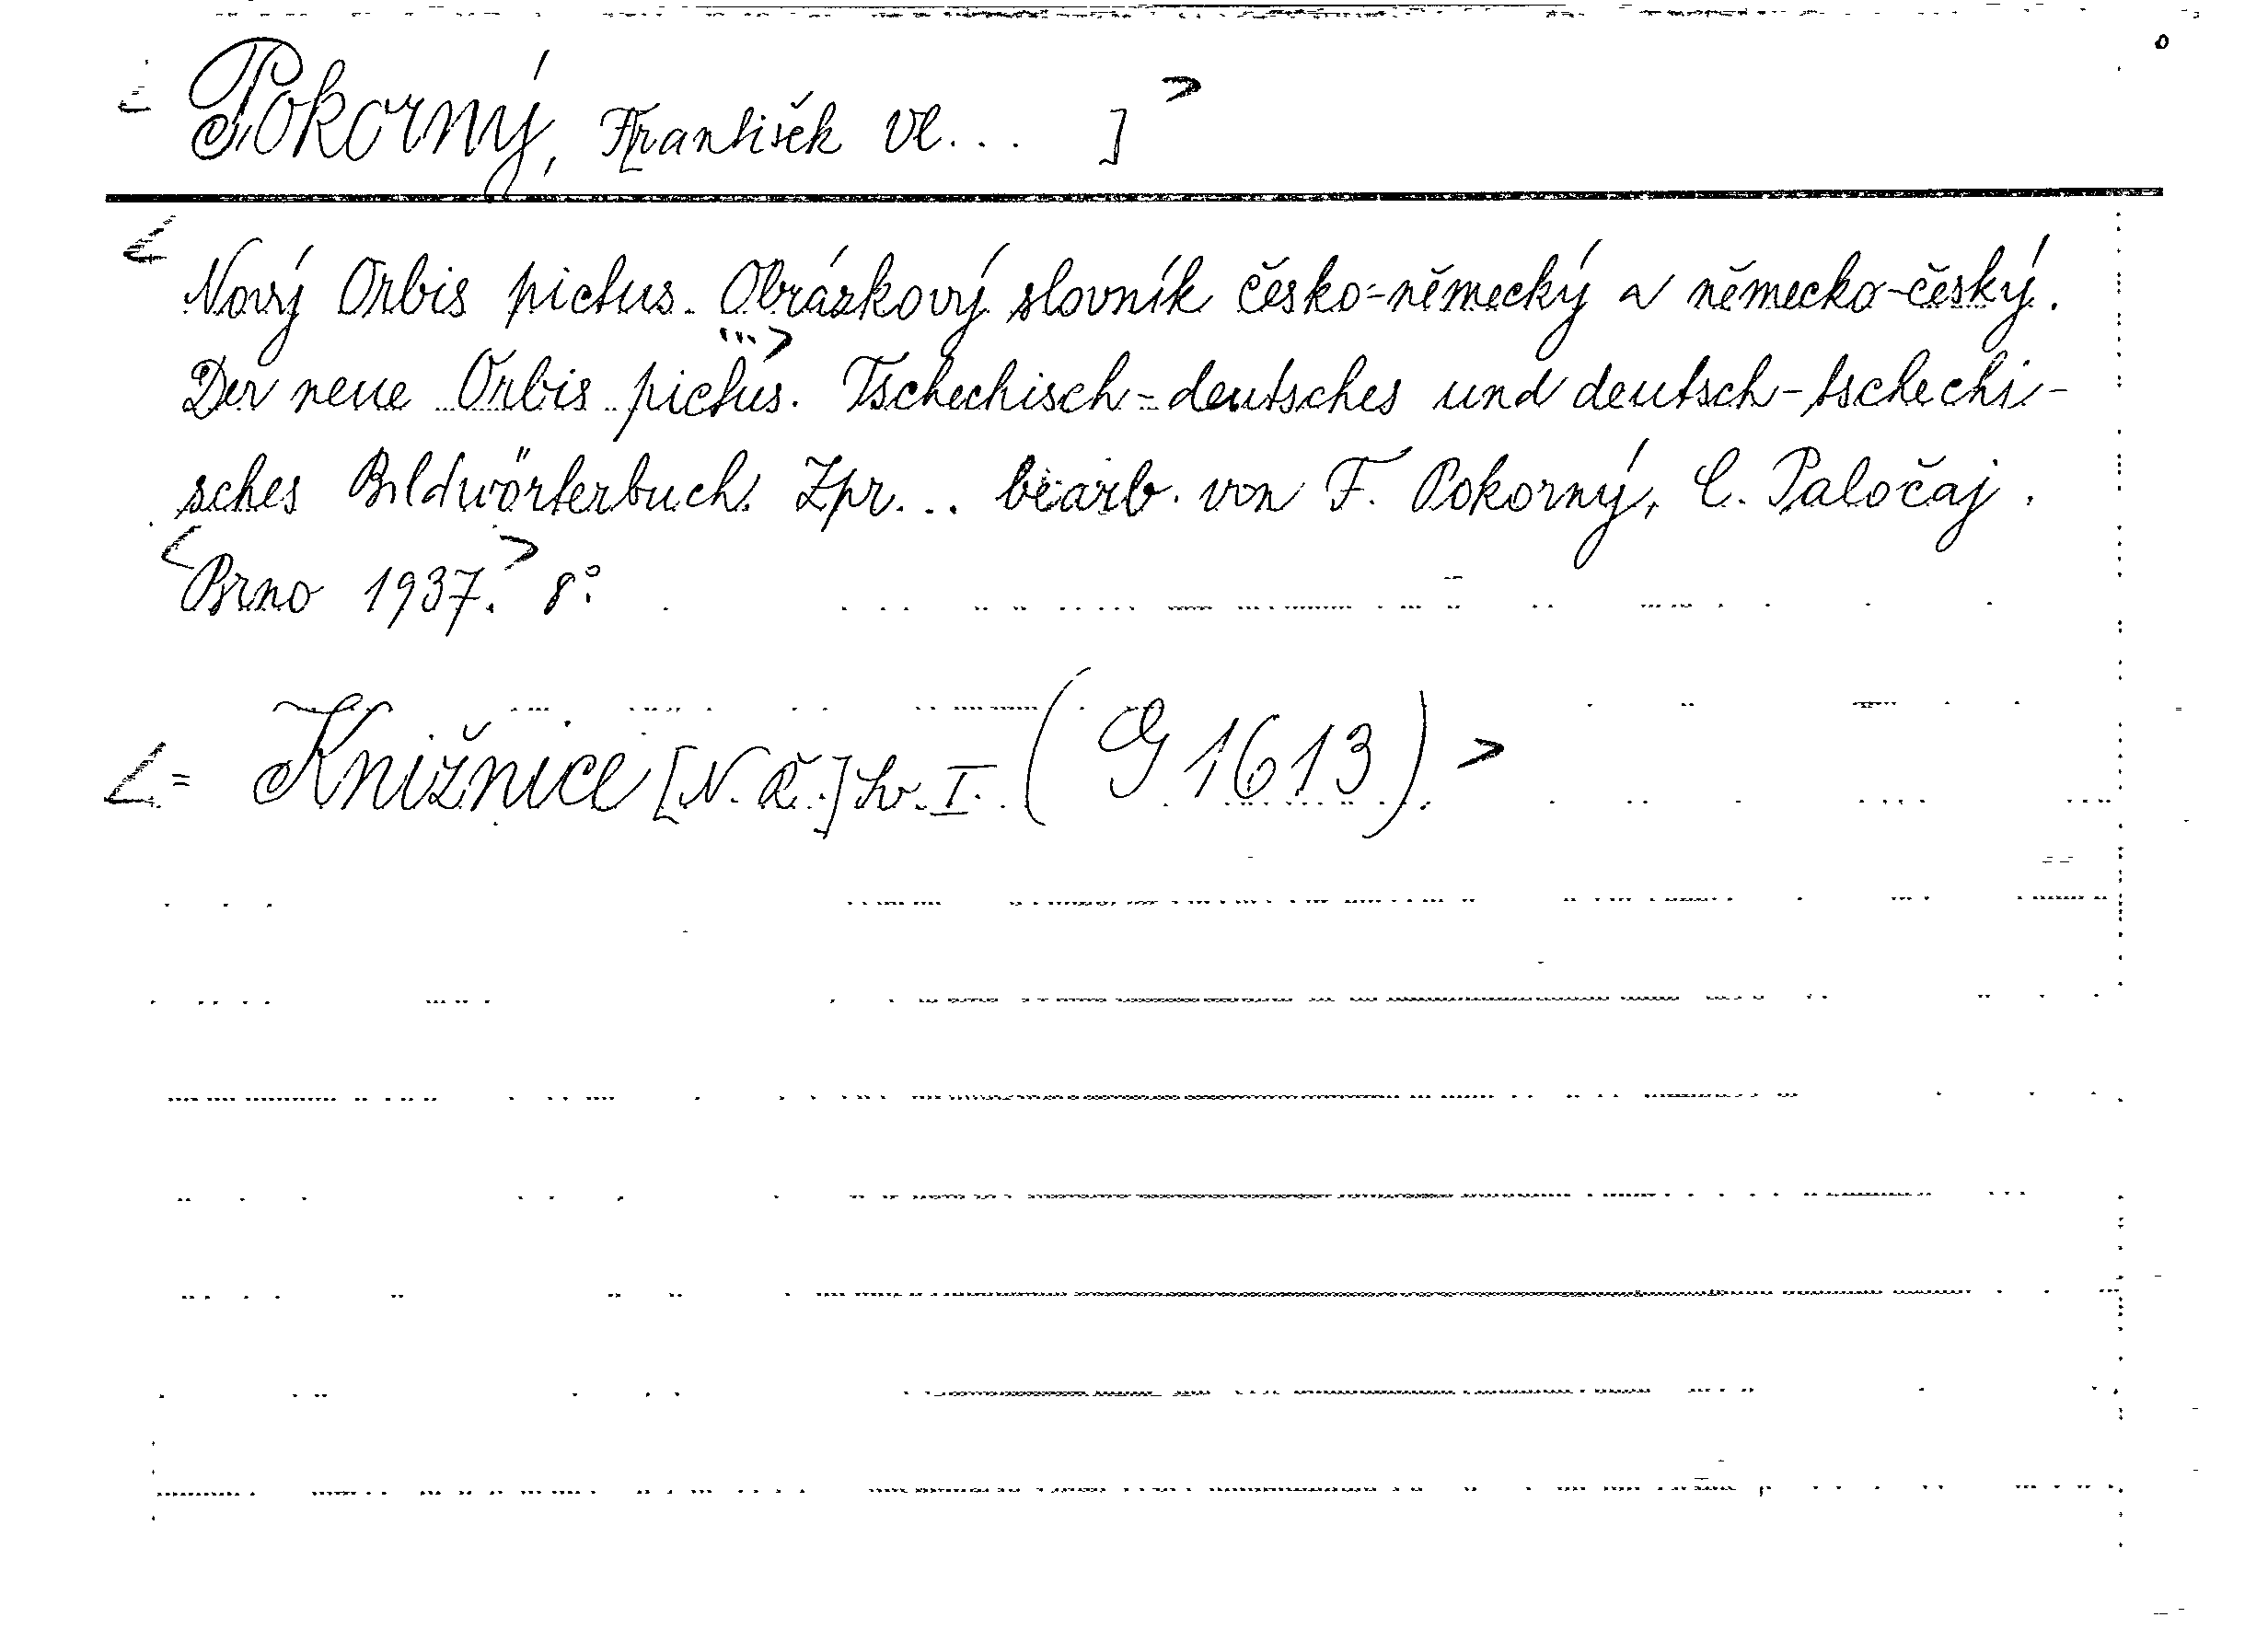 < Pokorný, František Vl... ] >
< Nový Orbis pictus. Obrázkový slovník česko-německý a německo-český.
...>
Der neue Orbis pictus. Tschechisch-deutsches und deutsch-tschechi-
sches Bildwörterbuch. Zpr... bearb. von F. Pokorný, C. Paločaj.
< Brno 1937. > 8°.
< = Knižnice [N. Č.] Sv. I. (G 1613) >